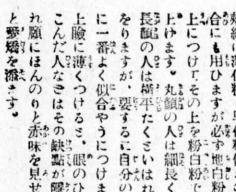 合にも用ひますが必ず地白粉
上につけて、その上を粉白粉で
上げます。丸顔の人は細長く
長顔の人は横平たくといはれ
をりますが、要するに自分の
に一番よく似合やうにつけま
上瞼に薄くつけると、眼のひ
こんだ人などはその缺點が
れ顔にほんのりと赤味を見せ
と艶嬌を添